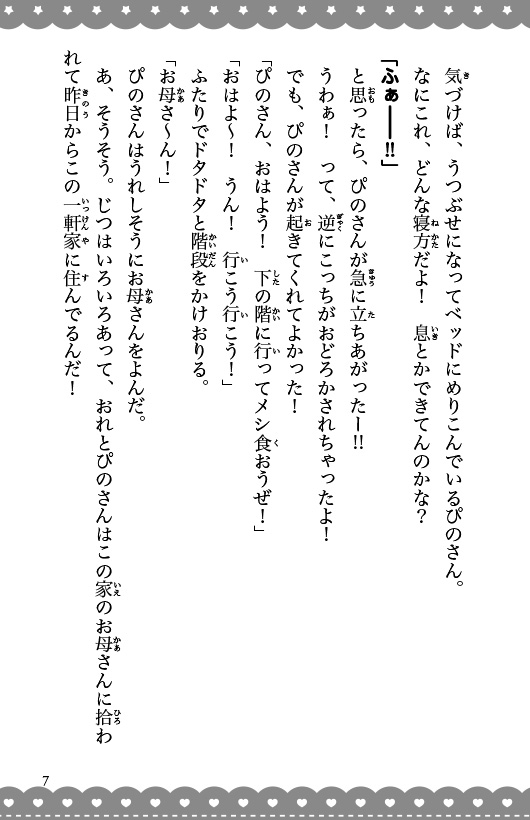 気づけば、うつぶせになってベッドにめりこんでいるぴのさん。
なにこれ、どんな寝方だよ！　息とかできてんのかな？
「ふぁ――!!」
と思ったら、ぴのさんが急に立ちあがったー!!
うわぁ！　って、逆にこっちがおどろかされちゃったよ！
でも、ぴのさんが起きてくれてよかった！
「ぴのさん、おはよう！　下の階に行ってメシ食おうぜ！」
「おはよ～！　うん！　行こう行こう！」
ふたりでドタドタと階段をかけおりる。
「お母さ～ん！」
ぴのさんはうれしそうにお母さんをよんだ。
あ、そうそう。じつはいろいろあって、おれとぴのさんはこの家のお母さんに拾わ
れて昨日からこの一軒家に住んでるんだ！
7